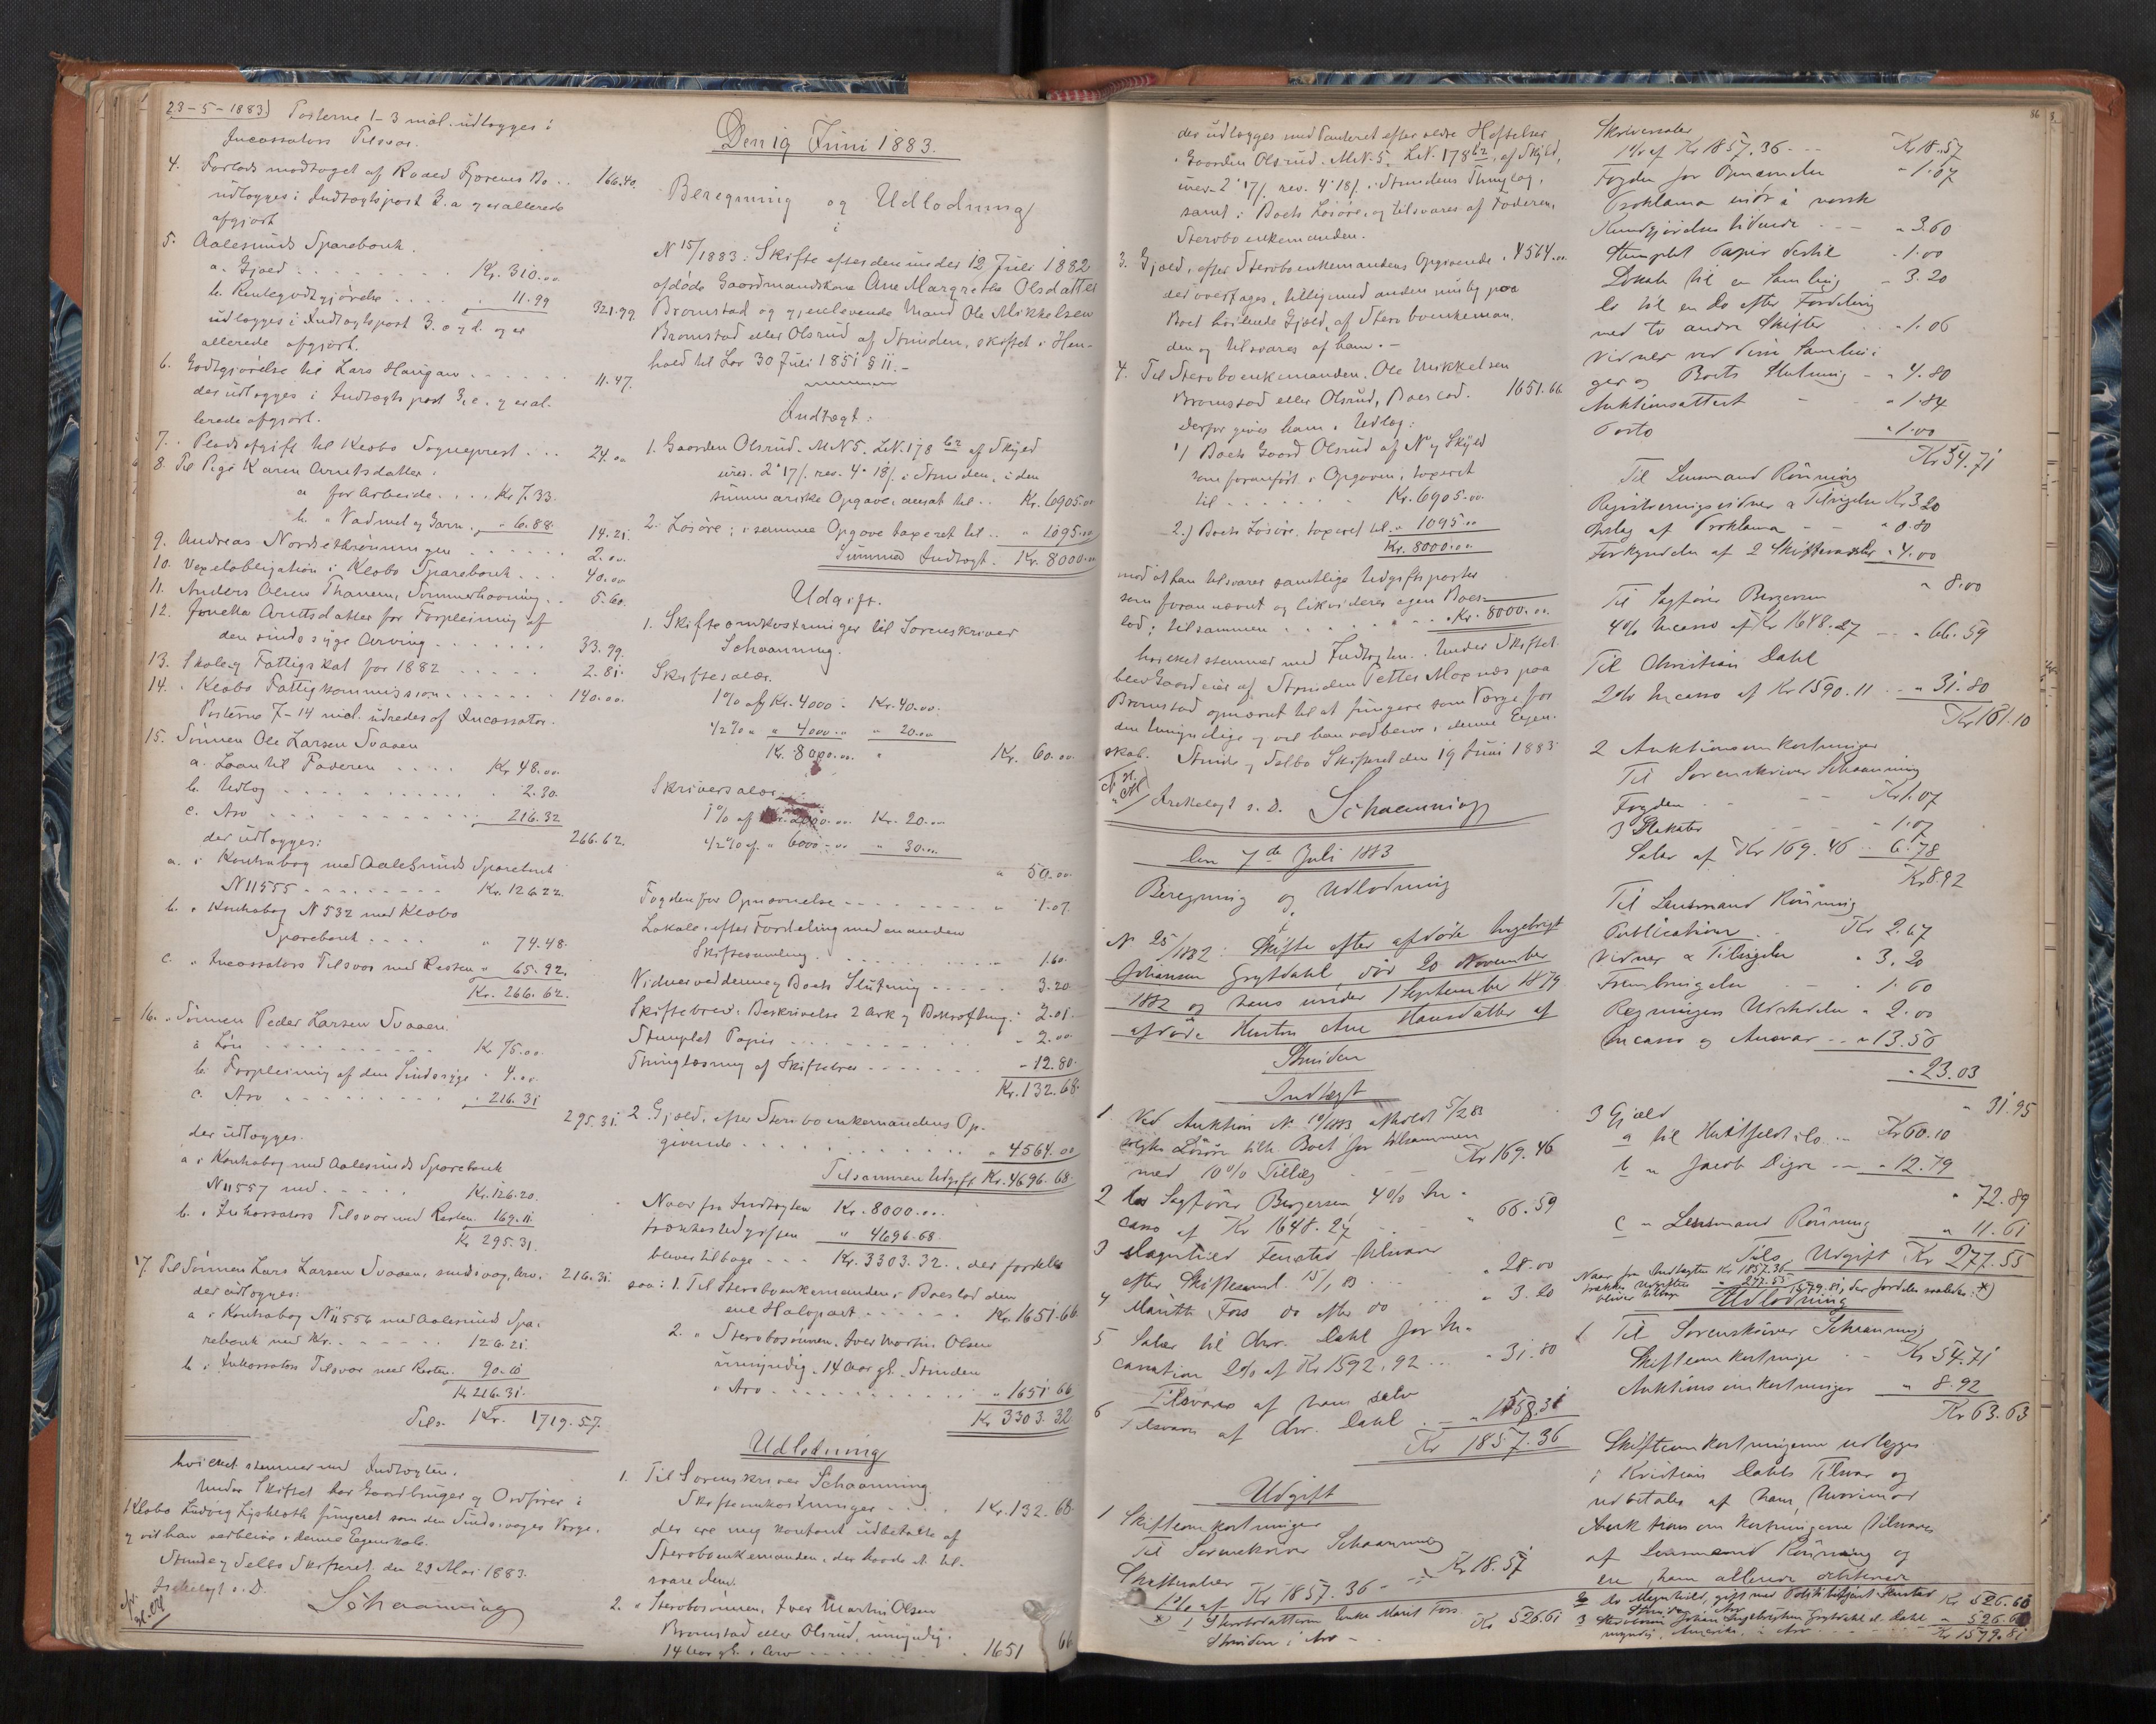 23-5-1883) Posterne 1-3 incl. udlægges i
Incassators Tilsvar.
4. Forlods modtaget af Raaed Fjærens Bo .. 166.40.
udlægges i Indtægtspost 3.a og er allerede
afgjort
5. Aalesunds Sparebank.
a. Gjæld ......... Kr. 310.00
b. Rentegodtgjørelse .... " 11.99
321.99
udlægges i Indtægtspost 3. og d. og er
allerede afgjort.
6. Godtgjørelse til Lars Haugan ...... 11.47.
der udlægges i Indtægtspost 3,c. og er al-
lerede afgjort.
7. Pladsafgift til Klæbo Sogneprest ... 24.00
8. Til Pige Karen Arntsdatter:
a for Arbeide .... Kr. 7.33.
b. " Vadmel og Garn " 6.88
14.21.
9. Andreas Nordsethrønningen ...... 2.00.
10. Vexelobligation i Klæbo Sparebank ... 40.00
11. Anders Olsen Thanem, Sommerhavning .. 5.60.
12. Jonetta Arntsdatter for Forpleining af
den sindssyge Arving ....... 33.99.
13. Skole og Fattigskat for 1882 ..... 2.81.
14. " Klæbo Fattigkommission ...... 140.00.
Posterne 7-14 incl. udredes af Incassator.
15. Sønnen Ole Larsen Svaaen
a. Laan til Faderen .... Kr. 48.00
b. Udlæg .......... " 2.30.
c. Arv ........... 216.32
266.62.
der udlægges:
a. i Kontrabog med Aalesunds Sparebank
N 11555 --------- Kr. 126.22.
b. " Kontrabog N 532 med Klæbo
Sparebank .... " 74.48.
c. " Incassators Tilsvar med Resten " 65.92.
Kr. 266.62.
16. " Sønnen Peder Larsen Svaaen.
a Løn ......... Kr. 75.00.
b. Forpleining af den Sindssyge " 4.00.
c. Arv ......... 216.31
295.31.
der udlægges.
a i Kontrabog med Aalesunds Sparebank
N 11557 med ..... Kr. 126.20.
b. " Inkassators Tilsvar med Resten. 169.11
Kr 295.31.
17. Til Sønnen Lars Larsen Svaaen, sindssvag, Arv. 216.31.
der udlægges:
a i Kontrabog N 11556 med Aalesund Spa-
rebank med Kr. ..... 126.21.
b. i Inkassators Tilsvar med Resten. 90.10
Kr 216.31.
Tils. Kr. 1719.57.
hvilket stemmer med Indtægten.
Under Skiftet har Gaardbruger og Ordfører i
Klæbo Ludvig Lysklæth fungeret som den Sindssvages Værge.
og vil han vedblive i denne Egenskab.
Strinde og Selbo Skifteret den 23 Mai 1883.
Schaanning
Den 19 Juni 1883.
Beregning og Udlodning
i
N 15/1883: Skifte efter den under 12 Juli 1882
afdøde Gaardmandskone Ane Margrethe Olsdatter
Bromstad og gjenlevende Mand Ole Mikkelsen
Bromstad eller Olsrud af Strinden, skiftet i Hen-
hold til Lov 30 Juli 1851 § 11.-
Indtægt:
1. Gaarden Olsrud. M.N 5. L.N. 178 b2 af Skyld
urev. 2" 17/. rev. 4" 18/. i Strinden, i den
summariske Opgave, ansat til .. Kr. 6905.00
2. Løsøre; i samme Opgave taxeret til .. " 1095.00
Summa Indtægt. Kr. 8000.00
Udgift.
1. Skifteomkostninger til Sorenskriver
Schaanning.
Skiftesalær.
1% af Kr. 4000 - Kr. 40.00.
1/2% " " 4000.00 " 20.00
Kr. 8000.00. " Kr. 60.00.
Skriversalær.
1% af Kr. 2000.00. Kr. 20.00
1/2% af. " 6000.00 " 30.00.
" 50.00.
Fogden for Opnævnelse -------- " 1.07.
Lokale, efter Fordeling med en anden
Skiftesamling. .......... 1.60.
Vidner ved denne og Boets Slutning ..... 3.20
Skiftebrev: Beskrivelse 2 Ark og Bekræftning. 2.01.
Stemplet Papir .......... " 2.00.
Thinglæsning af Skiftebrev ....... " 12.80.
Kr. 132.68.
2. Gjæld, efter Stervboenkemandens Op-
givende ............ " 4564.00
Tilsammen Udgift Kr. 4696.68.
Naar fra Indtægten Kr. 8000.00.
trækkes Udgiften " 4696.68.
bliver tilbage ... Kr. 3303.32. der fordeles
saa: 1. Til Stervboenkemanden, i Boeslod den
ene Halvpart ...... Kr. 1651.66
2. " Stervbosønnen, Iver Martin Olsen
umyndig, 14 Aar gl. Strinden
i Arv ............ " 1651.66
Kr 3303.32
Udlodning
1. Til Sorenskriver Schaanning
Skifteomkostninger .... Kr. 132.68.
der ere mig kontant udbetalte af
Stervboenkemanden, der havde at til-
svare dem.
2. " Stervbosønnen, Iver Martin Olsen
Bromstad eller Olsrud, umyndig.
14 Aar gl. i Arv ......... " 1651 66
86
der udlægges med Panteret efter ældre Heftelser
i Gaarden Olsrud. M.N. 5. L.N. 178 b2, af Skyld,
urev. 2" 17/. rev. 4" 18/. i Strindens Thinglag,
samt i Boets Løsøre, og tilsvares af Faderen,
Stervboenkemanden.
3. Gjæld, efter Stervboenkemandens Opgivende " 4564.00
der overtages, tilligemed anden mulig paa
Boet hvilende Gjæld, af Stervboenkeman-
den og tilsvares af ham.-
4. Til Stervboenkemanden, Ole Mikkelsen
Bromstad eller Olsrud, Boeslod. 1651.66
derfor gives ham i Udlæg:
1) Boets Gaard Olsrud af N og Skyld
som foranført i Opgaven, taxeret
til ...... Kr. 6905.00.
2.) Boets Løsøre, taxeret til " 1095.00
Kr. 8000.00.
mod at han tilsvarer samtlige Udgiftsposter
som foran nævnt og likviderer egen Boes-
lod; tilsammen ........ Kr. 8000.00.
hvilket stemmer med Indtægten. Under Skiftet
blev Gaardeier af Strinden Petter Moxnæs paa
Bromstad opnævnt til at fungere som Værge for
den Umyndige og vil han vedblive i denne Egen-
skab. Strinde og Selbo Skifteret den 19 Juni 1883.
Schaanning
Den 7de Juli 1883
Beregning og Udlodning
i
N 25/1882: Skifte efter afdøde Ingebrigt
Johansen Grytdahl død 20 November
1882 og hans under 1 September 1879
afdøde Hustru Ane Hansdatter af
Strinden
Indtægt
1. Ved Auktion N. 19/1883 afholdt 5/2 83
solgte Løsøre tilh. Boet for tilsammen
med 10% Tillæg - - Kr 169.46
2 hos Sagfører Bergersen 4% In-
casso af Kr 1648.27 - - " 66.59
3 Magnhild Fenstad tilsvarer
efter Skiftesaml. 15/1 83 ... " 28.00
4 Marith Foss do efter do ... " 3.20
5 Salær til Chr. Dahl for In-
cassation 2% af Kr 1592.92 ... " 31.80
Tilsvares af ham selv
6 Tilsvar af Chr. Dahl . - " 1558.31
Kr 1857.36
Udgift
1 Skifteomkostninger
Til Sorenskriver Schaanning
Skiftesalær
1% af Kr 1857.36 - - Kr 18.57
*) 1 Stervbodatteren Enke Marit Foss
Strinden i Arv - Kr 526.61
Skriversalær
1% af Kr 1857.36 -- Kr 18.57
Fogden for Opnævnelse " 1.07
Proklama indr. i norsk
Kundgjørelses tidende ... " 3.60
Stemplet Papir dertil " 1.00
Lokale til en Samling - 3.20
do til en do efter Fordeling
med to andre Skifter .. " 1.06
Vidner ved Samlin-
ger og Boets Slutning - " 4.80
Auktionsattest - " 1.84
Porto " 1.00
Kr 54.71
Til Lensmand Rönning
Registreringsvidner & Tilsigelse Kr 3.20
Opslag af Proklama - - " 0.80
Forkyndelse af 2 Skiftevarsler " 4.00
" 8.00
Til Sagfører Bergersen
4% Incasso af Kr 1648.27 -- " 66.59
Til Christian Dahl
2% Incasso af Kr 1590.11 .. " 31.80
Kr 161.10
2 Auktionsomkostninger
Til Sorenskriver Schaanning
Fogden - - Kr 1.07
3 Plakater - - " 1.07
Salær af Kr 169.46 .. 6.78
Kr 8.92
Til Lensmand Rönning
Publication .. Kr 2.67
Vidner & Tilsigelse " 3.20
Frembringelse - - " 1.60
Regningers Udstedelse " 2.00
Incasso og Ansvar -- " 13.56
" 23.03
" 31.95
3 Gjæld
a til Huitfeldt & Co. -- Kr 60.10
b " Jacob Digre -- " 12.79
" 72.89
c " Lensmand Rönning " 11.61
Tils. Udgift Kr 277.55
Naar fra Indtægten Kr 1857.36
trækkes Udgiften " 277.55
bliver tilbage 1579.81, der fordeles saaledes: *)
Udlodning
1 Til Sorenskriver Schaanning
Skifteomkostninger -- Kr 54.71
Auktionsomkostninger " 8.92
Kr 63.63
Skifteomkostningerne udlægges
i Kristian Dahls Tilsvar og
udbetales af ham, hvorimod
Auktionsomkostningerne tilsvares
af Lensmand Rönning og
ere ham allerede
2 do Magnhild, gift med Kr 526.60
Strinden Arv
3 Stervbosøn Johan Ingebrigtsen Grytdahl el. Dahl " 526.60
myndig, Amerika, i Arv ..... Kr 1579.81